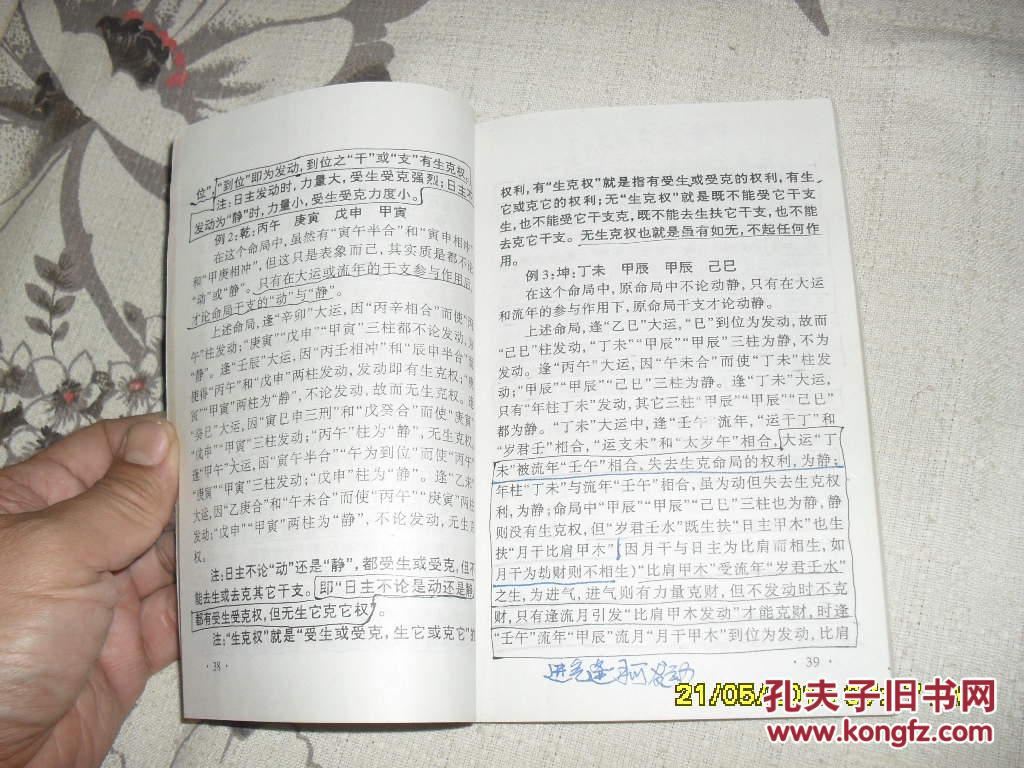 位”,“到位”即为发动,到位之“干”或“支”有生克权。
注:日主发动时,力量大,受生受克强烈;日主不
发动为“静”时,力量小,受生受克力度小。
例2:乾:丙午 庚寅 戊申 甲寅
在这个命局中,虽然有“寅午半合”和“寅申相冲”
和“甲庚相冲”,但这只是表象而己,其实质是都不论
“动”或“静”。只有在大运或流年的干支参与作用后,
才论命局干支的“动”与“静”。
上述命局,逢“辛卯”大运,因“丙辛相合”而使“丙
午”柱发动;“庚寅”“戊申”“甲寅”三柱都不论发动,为
“静”。逢“壬辰”大运,因“丙壬相冲”和“辰申半合”
使得“丙午”和“戊申”两柱发动,发动即有生克权;“庚
寅”“甲寅”两柱为“静”,不论发动,故而无生克权。逢
“癸巳”大运,因“寅巳申三刑”和“戊癸合”而使“庚寅”
“戊申”“甲寅”三柱发动;“丙午”柱为“静”,无生克权。
逢“甲午”大运,因“寅午半合”“午为到位”而使“丙午”
“庚寅”“甲寅”三柱发动;“戊申”柱为“静”。逢“乙未”
大运,因“乙庚合”和“午未合”而使“丙午”“庚寅”两柱
发动;“戊申”“甲寅”两柱为“静”,不论发动,无生克
权。
注:日主不论“动”还是“静”,都受生或受克,但不
能去生或去克其它干支。即“日主不论是动还是静
都有受生受克权,但无生它克它权”。
注:“生克权”就是“受生或受克,生它或克它”
· 38 ·
权利,有“生克权”就是指有受生或受克的权利,有生
它或克它的权利;无“生克权”就是既不能受它干支
生,也不能受它干支克,既不能去生扶它干支,也不能
去克它干支。无生克权也就是虽有如无,不起任何作
用。
例3:坤:丁未 甲辰 甲辰 己巳
在这个命局中,原命局中不论动静,只有在大运
和流年的参与作用下,原命局干支才论动静。
上述命局,逢“乙巳”大运,“巳”到位为发动,故而
“己巳”柱发动,“丁未”“甲辰”“甲辰”三柱为静,不为
发动。逢“丙午”大运,因“午未合”而使“丁未”柱发
动;“甲辰”“甲辰”“己巳”三柱为静。逢“丁未”大运,
只有“年柱丁未”发动,其它三柱“甲辰”“甲辰”“己巳”
都为静。“丁未”大运中,逢“壬午”流年,“运干丁”和
“岁君壬”相合,“运支未”和“太岁午”相合,大运“丁
未”被流年“壬午”相合,失去生克命局的权利,为静;
年柱“丁未”与流年“壬午”相合,虽为动但失去生克权
利,为静;命局中“甲辰”“甲辰”“己巳”三柱也为静,静
则没有生克权,但“岁君壬水”既生扶“日主甲木”也生
扶“月干比肩甲木”(因月干与日主为比肩而相生,如
月干为劫财则不相生)“比肩甲木”受流年“岁君壬水”
之生,为进气,进气则有力量克财,但不发动时不克
财,只有逢流月引发“比肩甲木发动”才能克财,时逢
“壬午”流年“甲辰”流月“月干甲木”到位为发动,比肩
· 39 ·
21/05/
孔夫子旧书网
www.kongfz.com